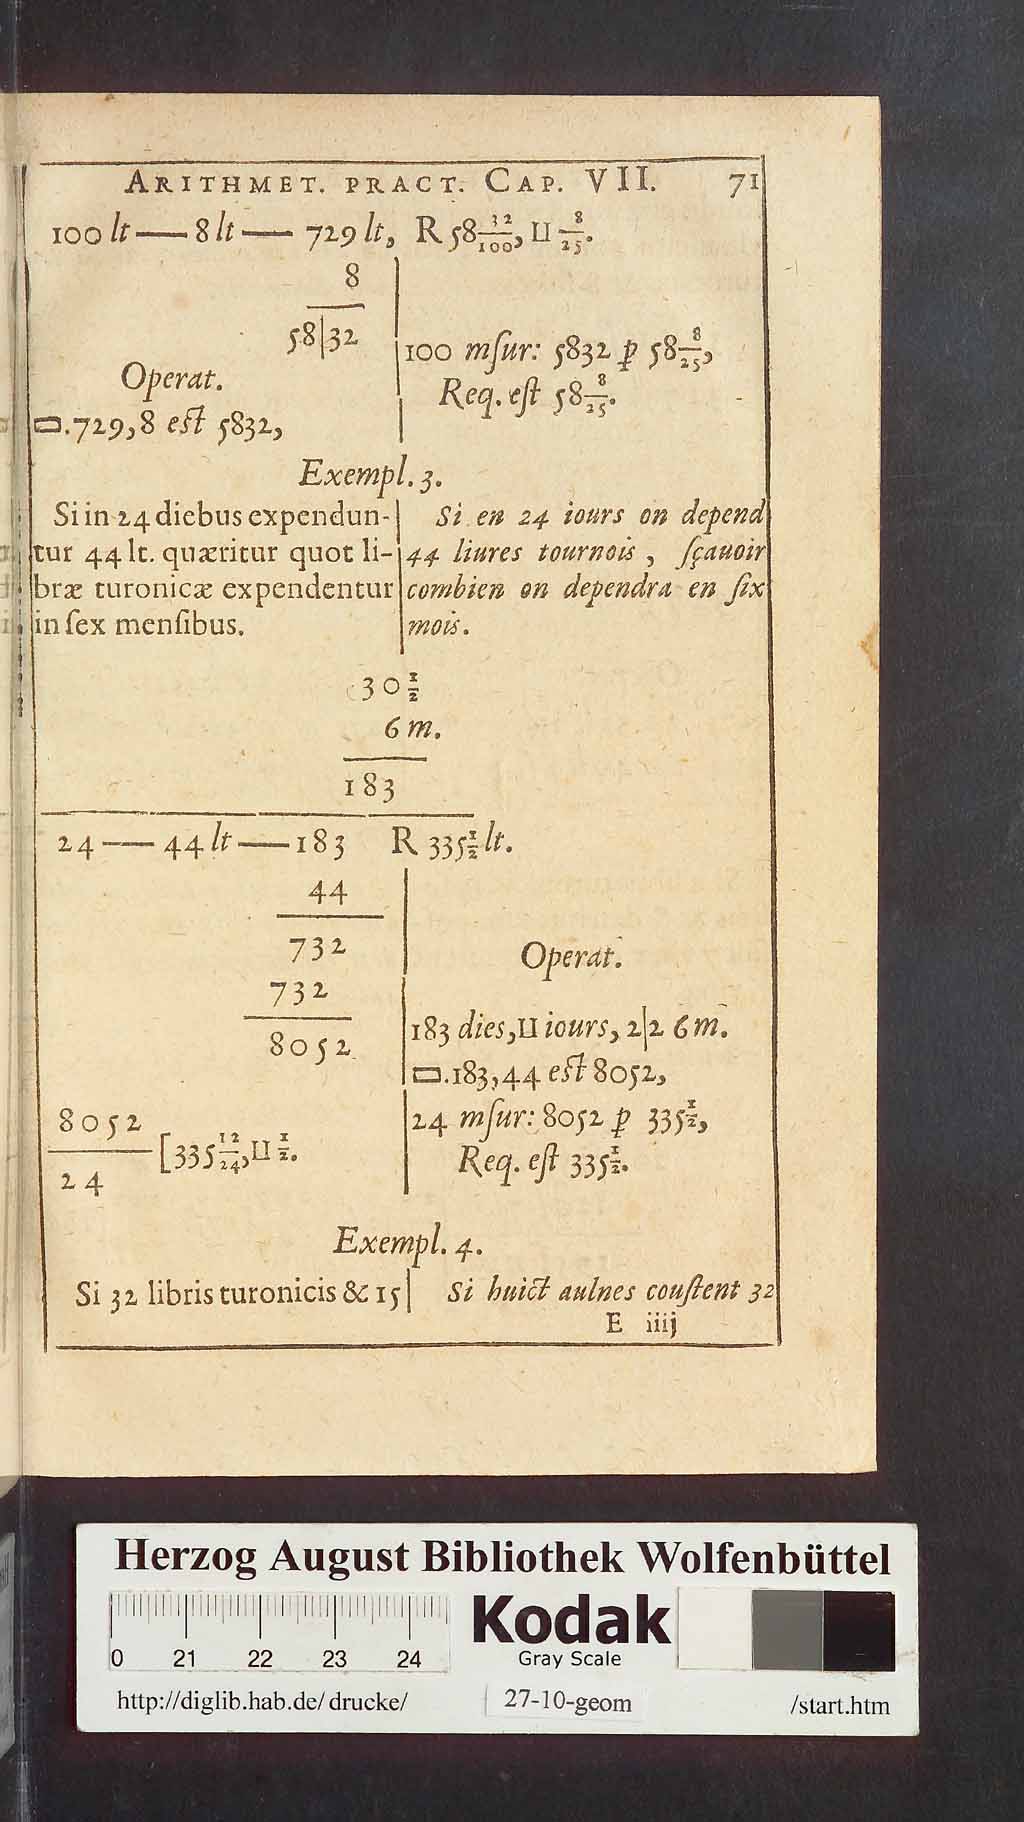 ARITHMET. PRACT. CAP. VII. 71
100 lt — 8 lt — 729 lt, R 58 32/100, II 8/25.
8
58|32
Operat.
▭.729,8 est 5832,
100 mſur: 5832 ꝑ 58 8/25,
Req. eſt 58 8/25.
Exempl. 3.
Si in 24 diebus expendun-
tur 44 lt. quæritur quot li-
bræ turonicæ expendentur
in ſex menſibus.
Si en 24 iours on depend
44 liures tournois, ſçauoir
combien on dependra en ſix
mois.
30 1/2
6 m.
183
24 — 44 lt — 183 R 335 1/2 lt.
44
732
732
8052
8052
24
[335 12/24, II 1/2.
Operat.
183 dies, II iours, 2|2 6 m.
▭.183,44 est 8052,
24 mſur: 8052 ꝑ 335 1/2,
Req. eſt 335 1/2.
Exempl. 4.
Si 32 libris turonicis & 15
Si huict aulnes couſtent 32
E iiij
Herzog August Bibliothek Wolfenbüttel
0 21 22 23 24
Kodak
Gray Scale
http://diglib.hab.de/ drucke/ 27-10-geom /start.htm